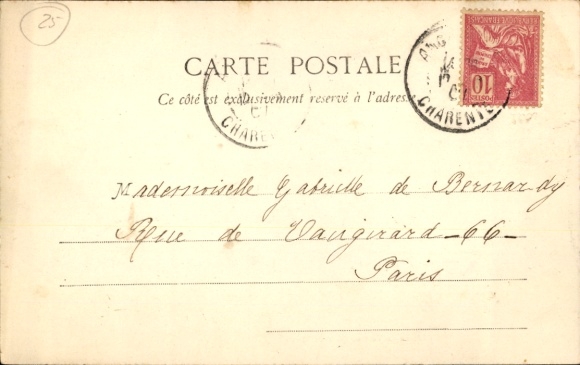 25
RÉPUBLIQUE FRANÇAISE
POSTES 10
CHARENTE
CARTE POSTALE
Ce côté est exclusivement reservé à l'adresse
CHARENTE
Mademoiselle Gabrielle de Bernardy
Rue de Vaugirard - 66 -
Paris